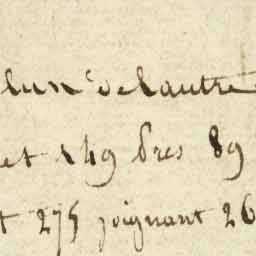 lun delautre
et 149 bres 89
t 275 joignant 26